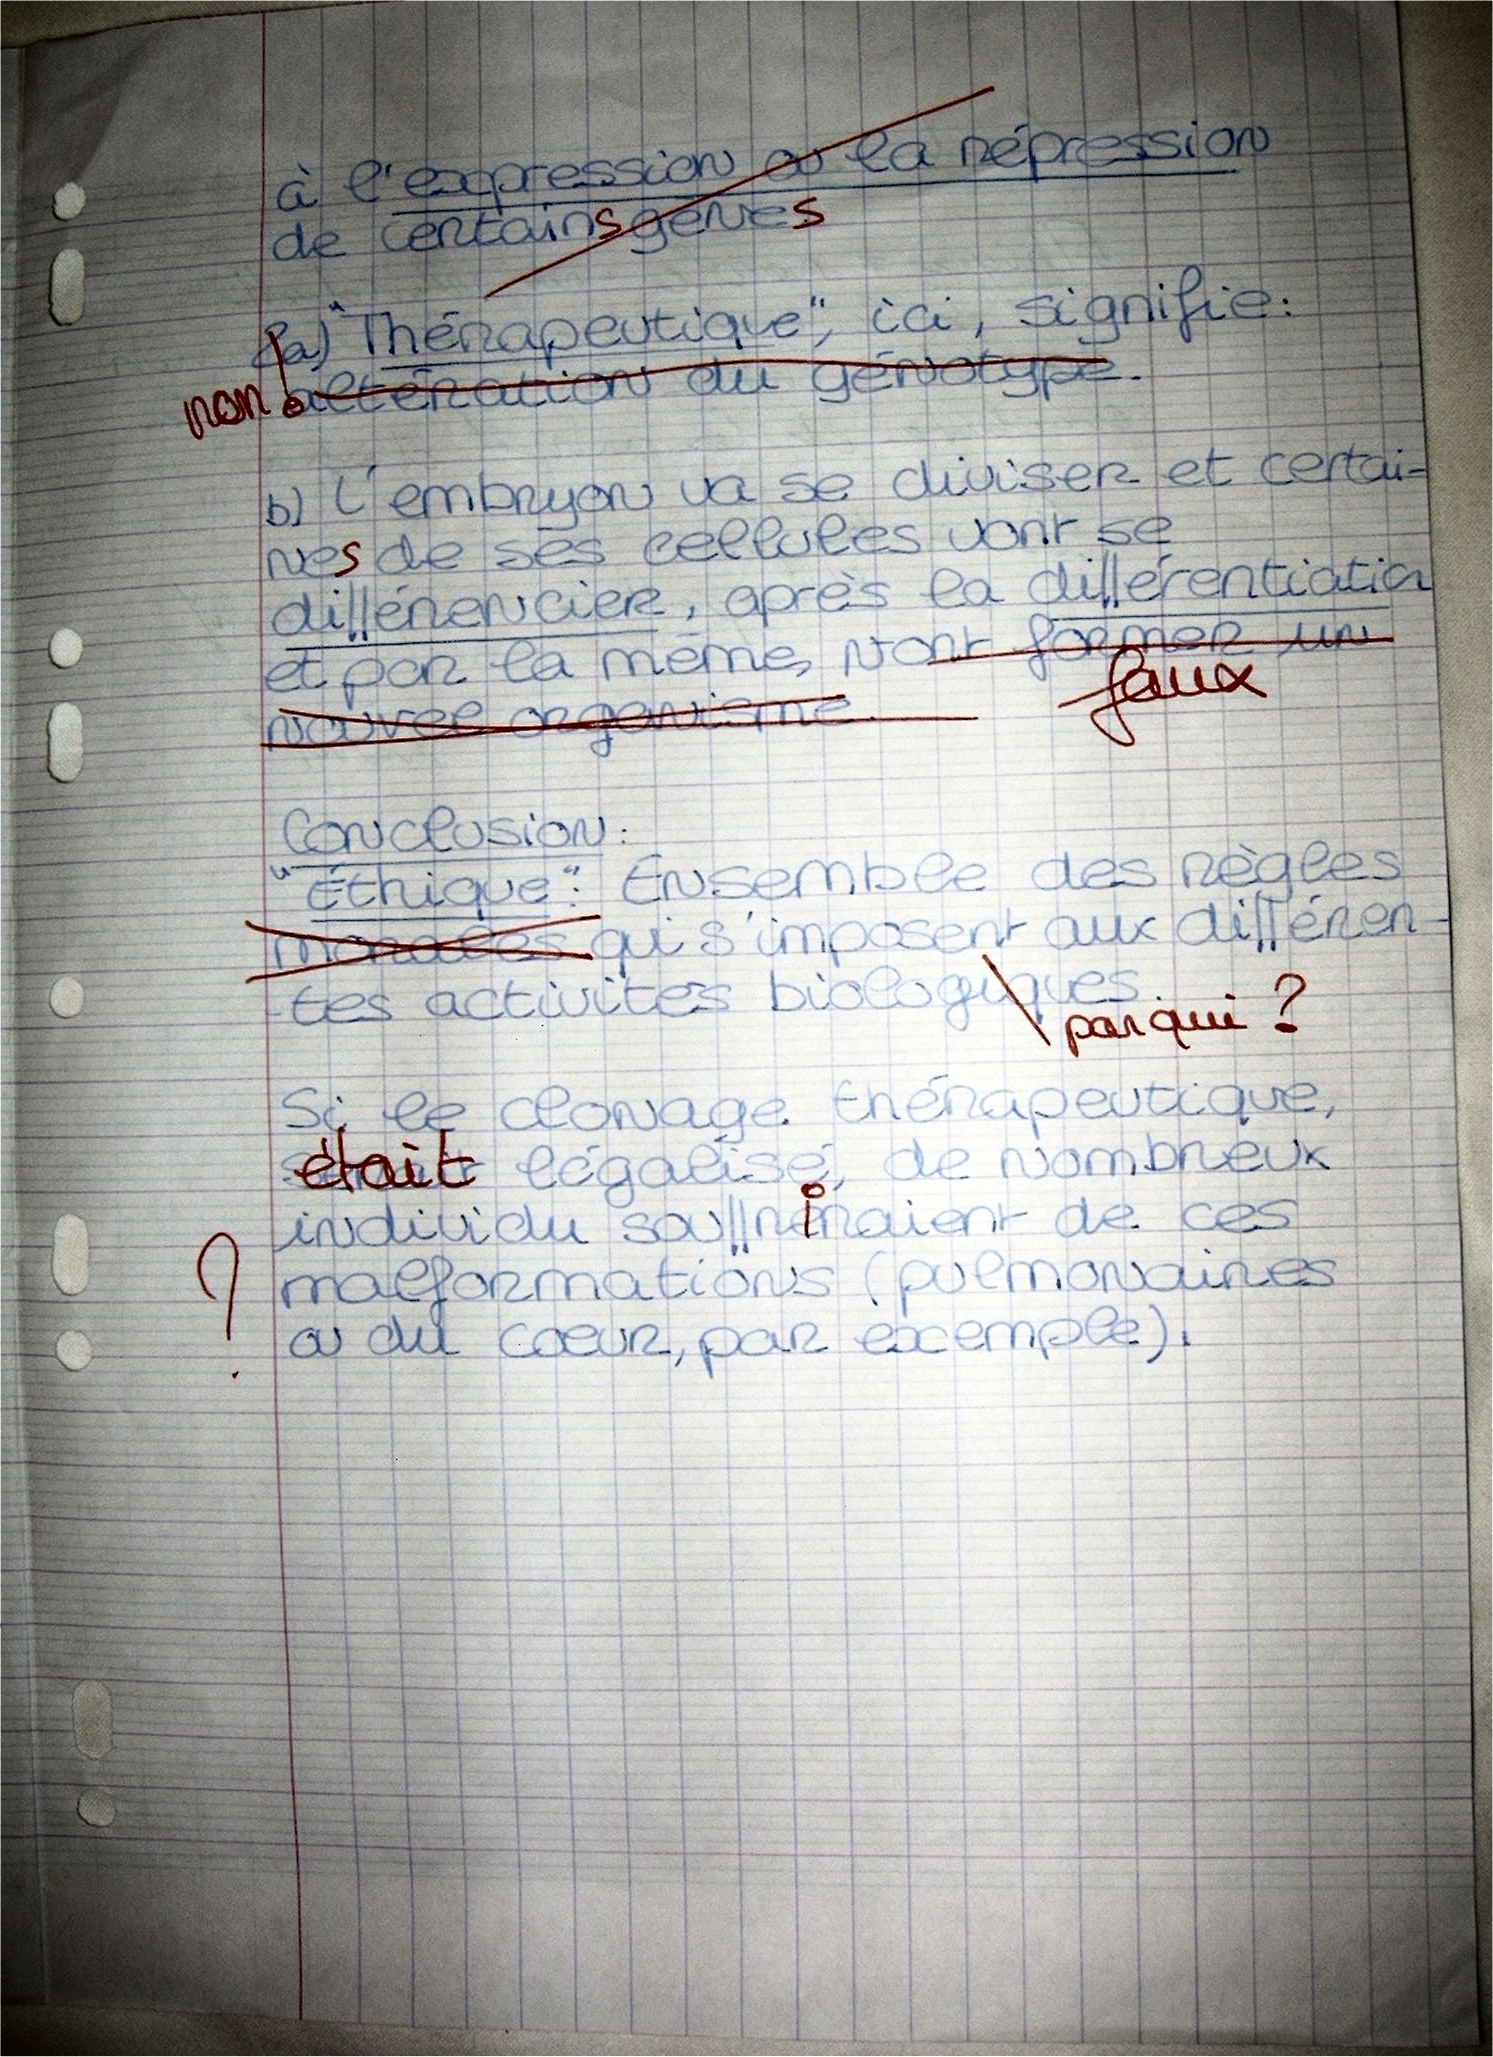 à l'expression ou la répression
de certains gènes
2)a) "Thérapeutique", ici, signifie:
non! altération du génotype.
b) L'embryon va se diviser et certai-
nes de ses cellules vont se
différencier, après la différentiation
et par la même, vont former un
faux
nouvel organisme.
Conclusion:
"Éthique": Ensemble des règles
morales qui s'imposent aux différen-
tes activités biologiques.
par qui ?
Si le clonage thérapeutique,
était légalisé, de nombreux
individu souffriraient de ces
? malformations (pulmonaires
ou du coeur, par exemple).